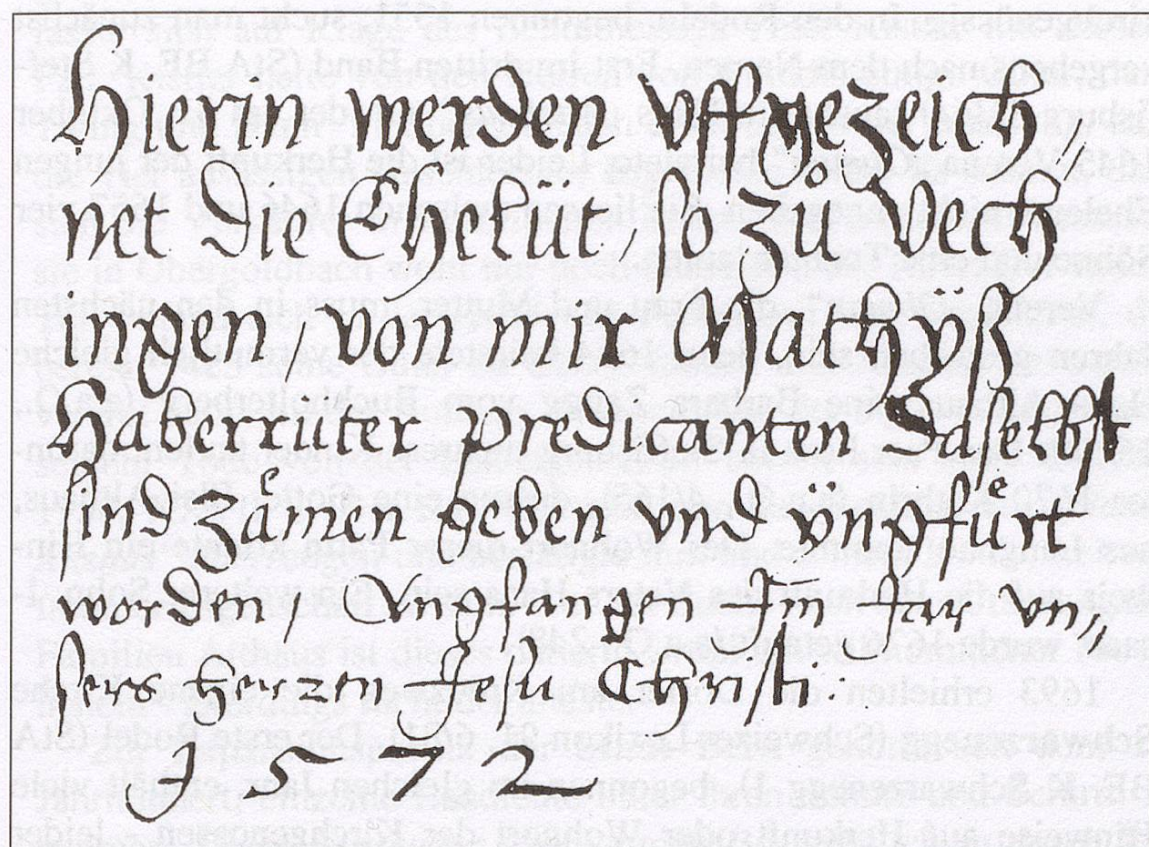 Hierin werden vffgezeich//
net die Ehelüt, so zů Vech
ingen, von mir Mathyß
Haberrüter predicanten daselbst
sind zaͤmen geben vnd ÿngfuͤrt
worden, Angfangen Im Jar vn//
sers Herren Jesu Christi.
1572